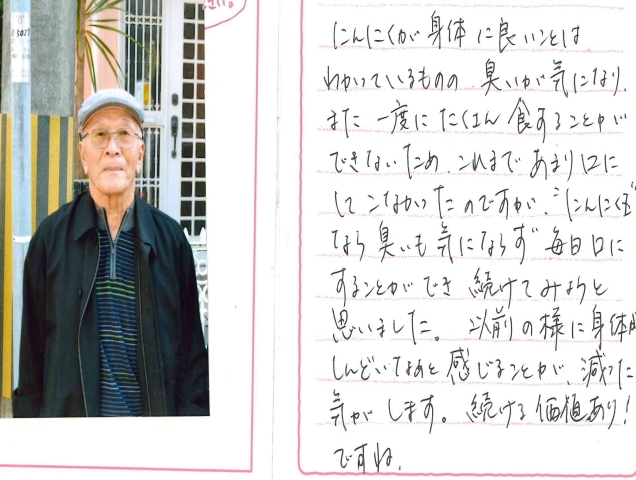 にんにくが身体に良いことは
わかっているものの、臭いが気になり、
また一度にたくさん食することが
できないため、これまであまり口に
してこなかったのですが、
なら臭いも気にならず毎日口に
することができ続けてみようと
思いました。以前の様に身体が
しんどいなあと感じることが、減った
気がします。続ける価値あり!
ですね。